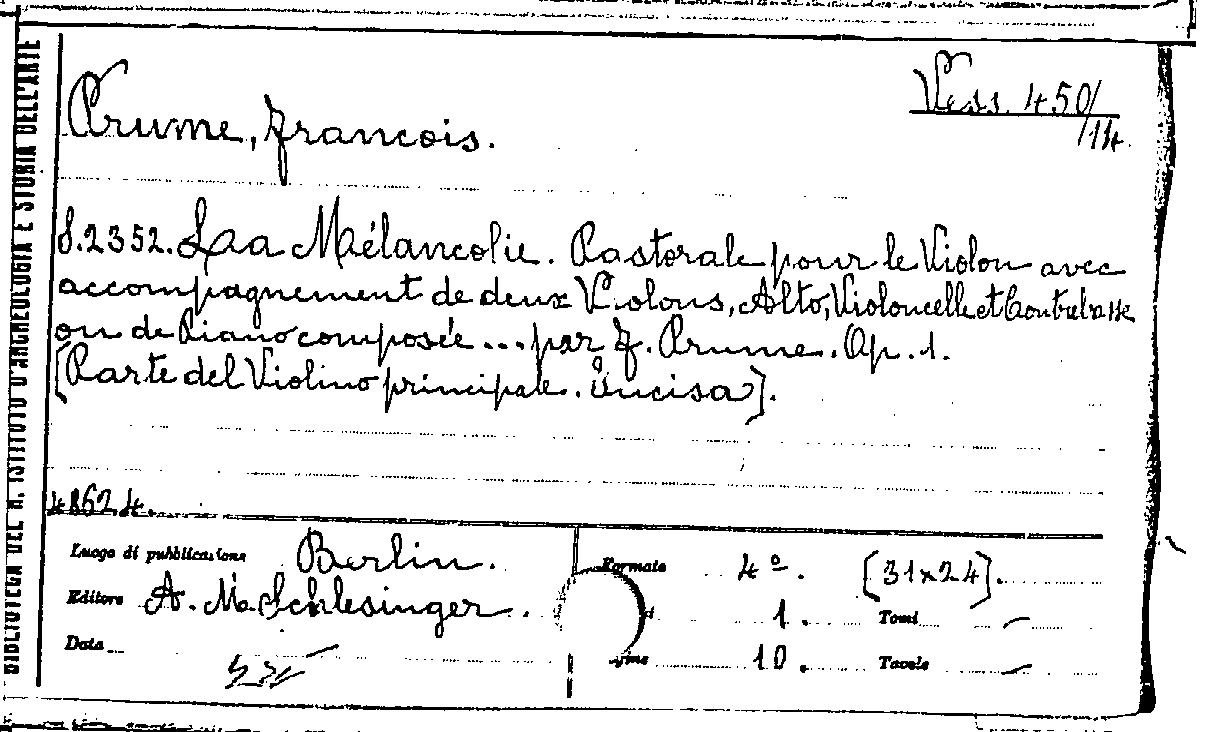 BIBLIOTECA DEL R. ISTITUTO D'ARCHEOLOGIA E STORIA DELL'ARTE
Prume, Francois.
Vess. 450/14.
S.2352. Laa Mélancolie. Pastorale pour le Violon avec
accompagnement de deux Violons, Alto, Violoncelle et Contrebasse
ou de Piano composée ... par F. Prume. Op. 1.
[Parte del Violino principale. Incisa].
48624.
Luogo di pubblicazione Berlin.
Formato 4º. [31x24].
Editore A. M. Schlesinger.
1. Tomi —
Data —
10. Tavole —